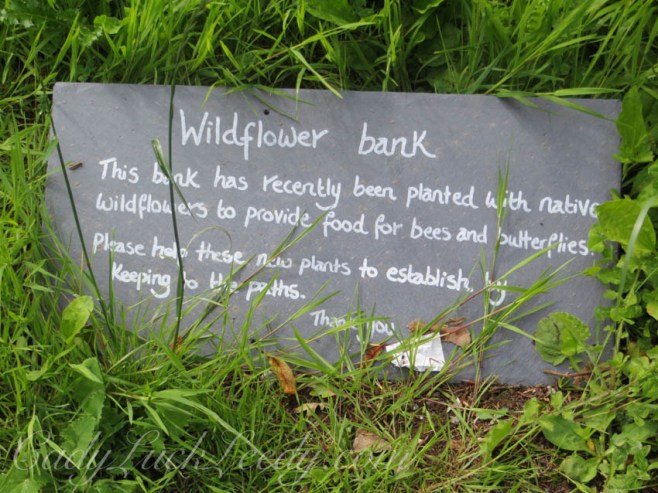 Wildflower bank
This bank has recently been planted with native
wildflowers to provide food for bees and butterflies.
Please help these new plants to establish, by
keeping to the paths.
Thank you
LadyLuckLeedy.com